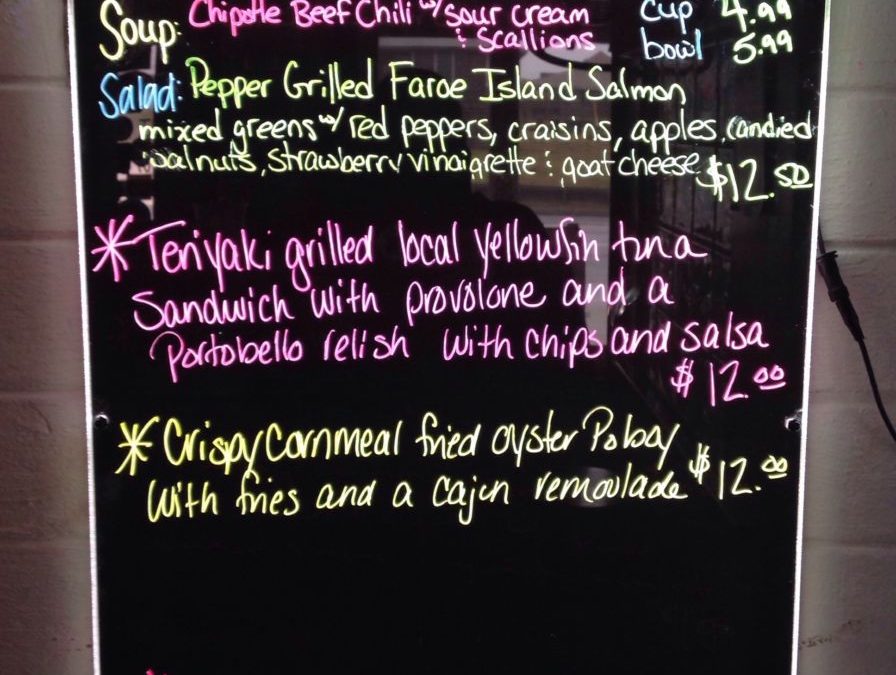 Soup: Chipotle Beef Chili w/ sour cream cup 4.99
& scallions bowl 5.99
Salad: Pepper Grilled Faroe Island Salmon
mixed greens w/ red peppers, craisins, apples, candied
walnuts, strawberry vinaigrette & goat cheese $12.50
* Teriyaki grilled local yellowfin tuna
Sandwich with provolone and a
Portobello relish with chips and salsa
$12.00
* Crispy Cornmeal fried oyster Poboy
With fries and a cajun remoulade $12.00